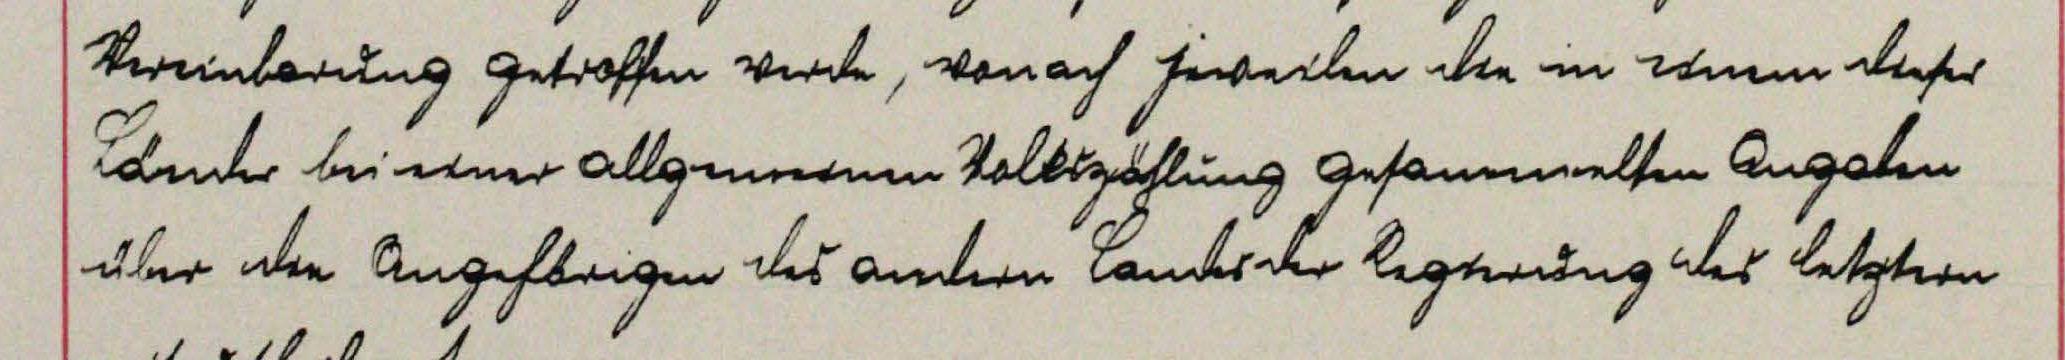 Vereinbarung getroffen werde, wonach jeweilen die in einem dieser
Länder bei einer allgemeinen Volkszählung gesammelten Angaben
über die Angehörigen des andern Landes der Regierung des letztern